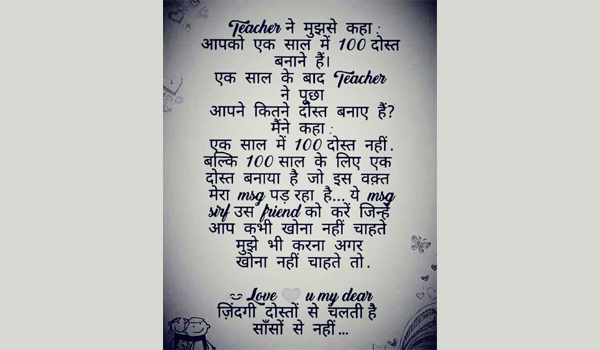 Teacher ने मुझसे कहा :
आपको एक साल में 100 दोस्त
बनाने हैं।
एक साल के बाद Teacher
ने पूछा
आपने कितने दोस्त बनाए हैं?
मैंने कहा :
एक साल में 100 दोस्त नहीं.
बल्कि 100 साल के लिए एक
दोस्त बनाया है जो इस वक़्त
मेरा msg पड़ रहा है... ये msg
sirf उस friend को करें जिन्हें
आप कभी खोना नहीं चाहते
मुझे भी करना अगर
खोना नहीं चाहते तो.
Love u my dear
ज़िंदगी दोस्तों से चलती है
साँसों से नहीं...